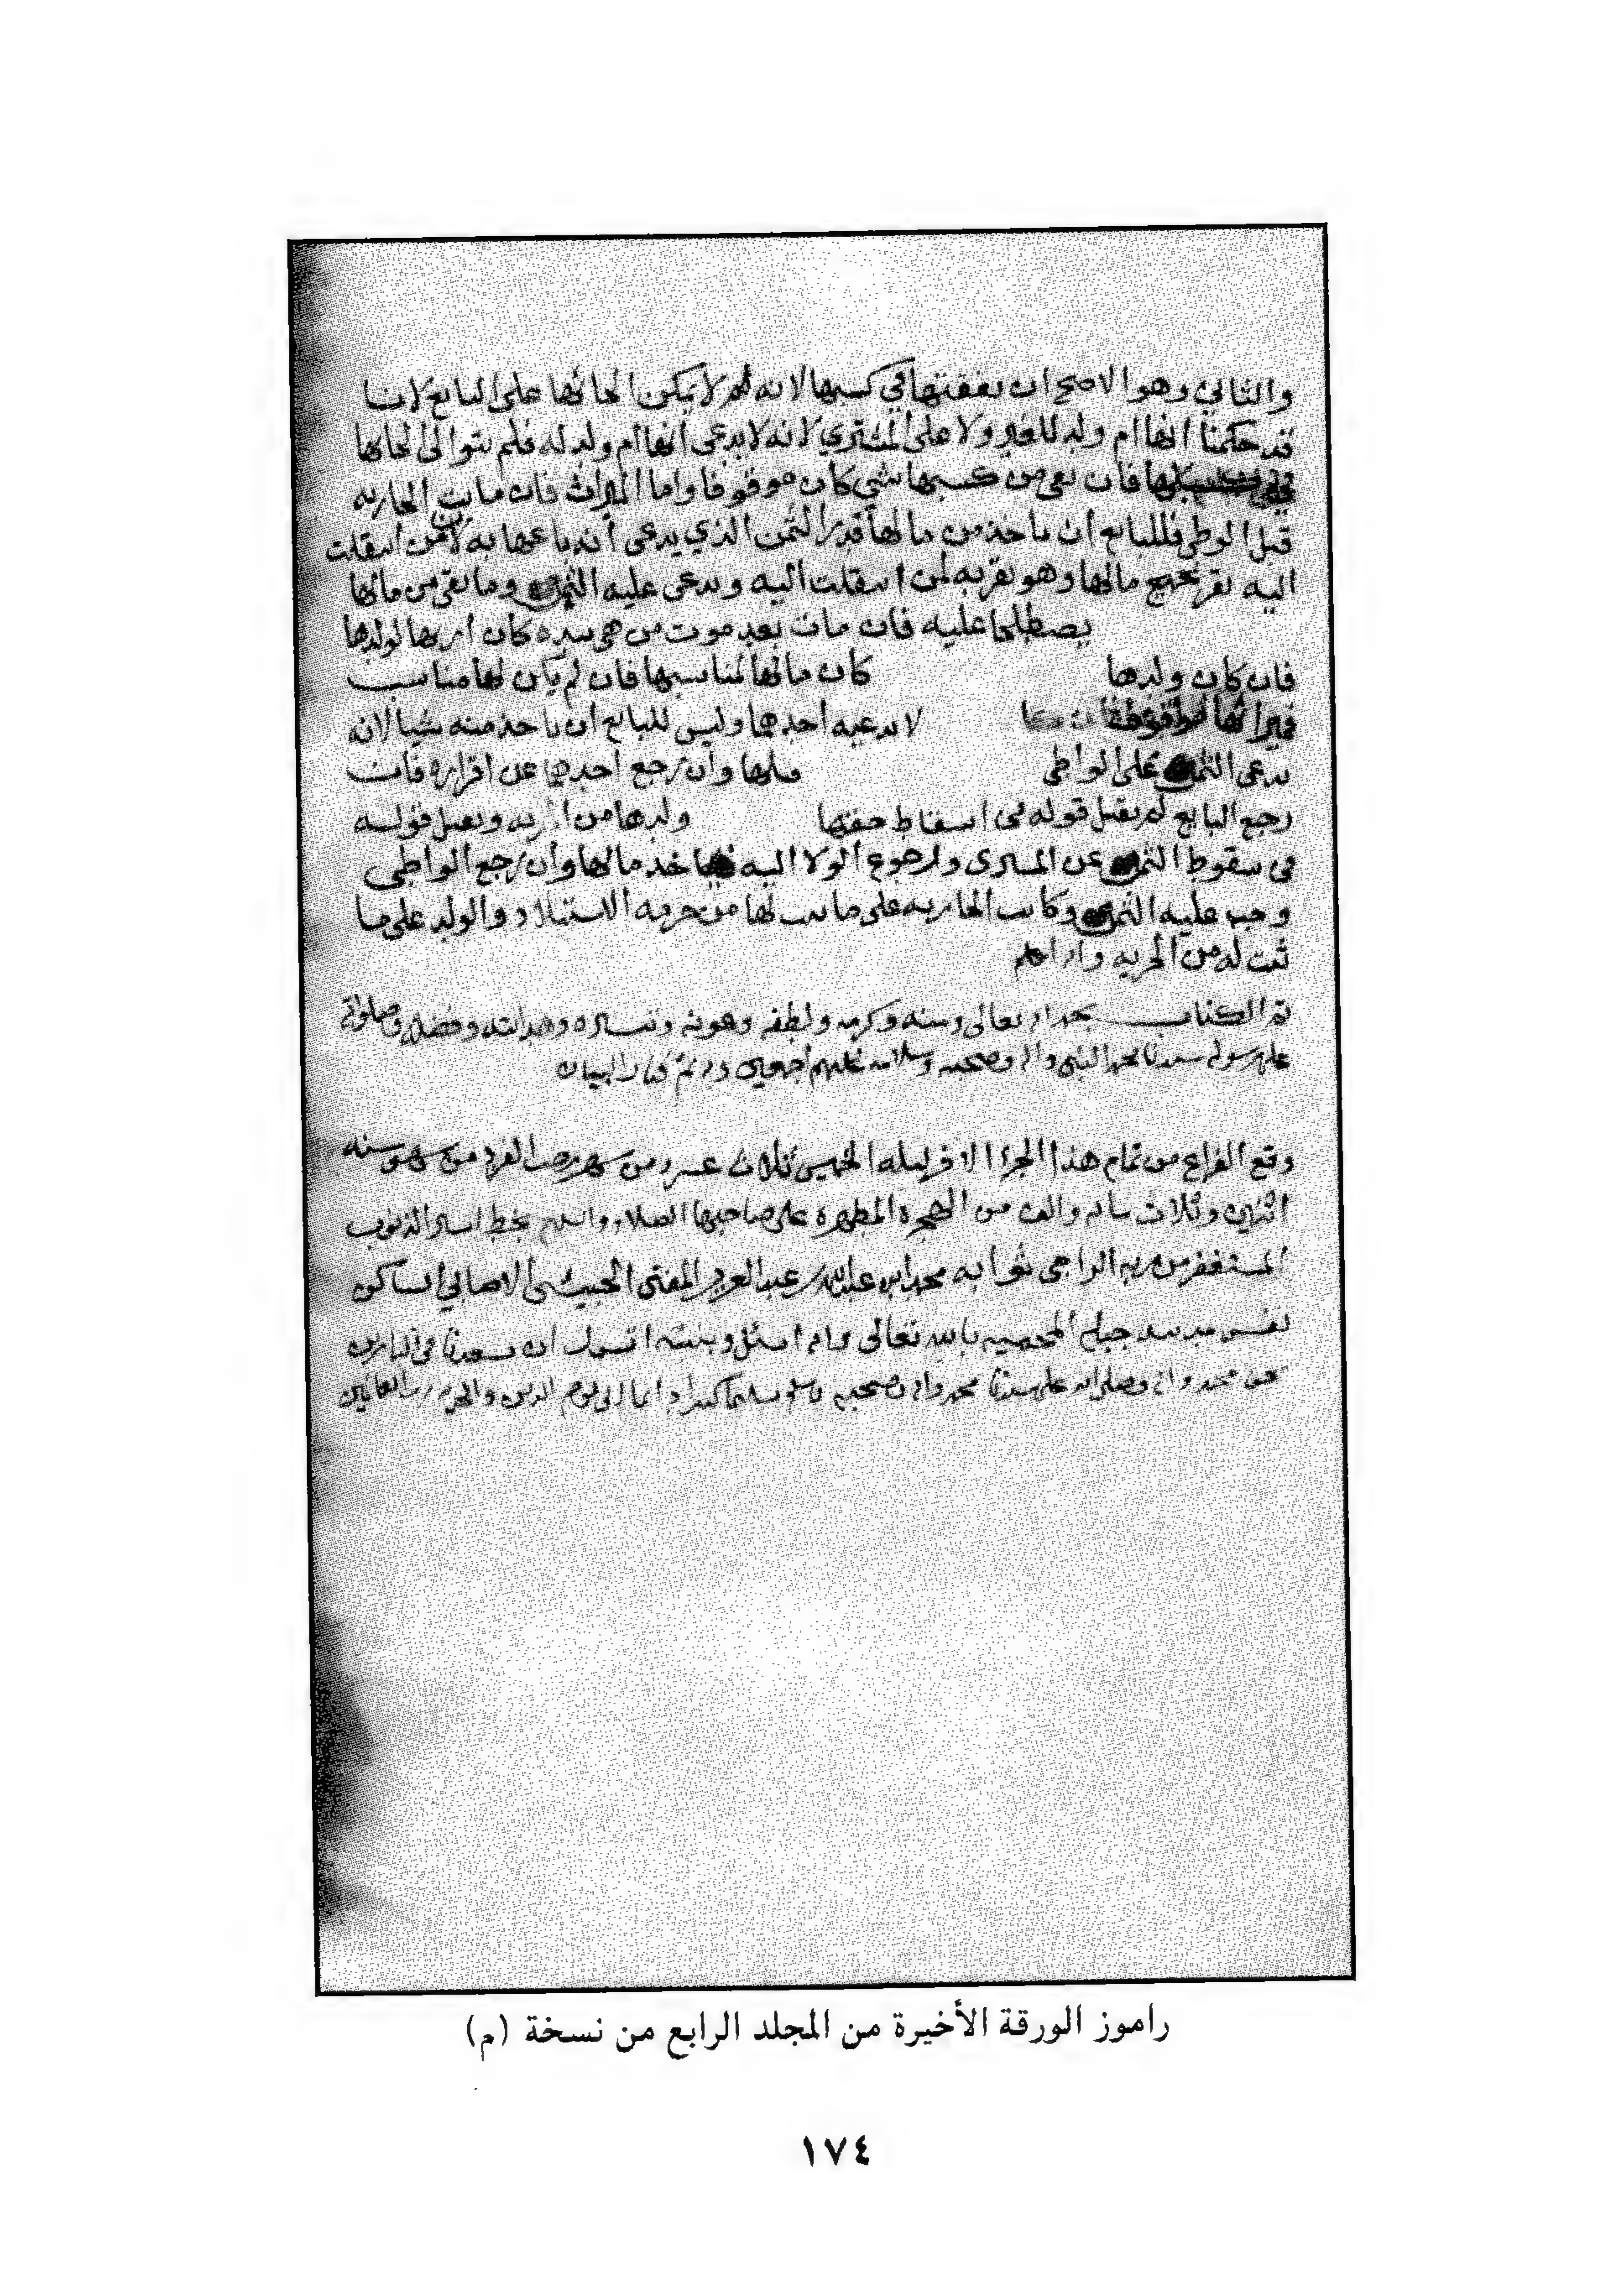 والثاني وهو الاصح ان نفقتها في كسبها لانه لا يمكن الحاقها على البايع لانا
قد حكمنا انها ام ولد للغير ولا على المشتري لانه لا يدعى انها ام ولد له فلم
فان بقي من كسبها شي كان موقوفا واما الميراث فان ماتت الجاريه
قبل الوطي فللبايع ان ياخذ من مالها قدر الثمن الذي يدعى أنه باعها به لان من انتقلت
اليه يقر بجميع مالها وهو يقر به لمن انتقلت اليه ويدعى عليه الثمن وما بقي من مالها
يصطلحا عليه فان مات بعد موت من هي بيده كان
فان كان ولدها كان مالها لمناسبها فان لم يكن لها مناسب
فميراثها لا يدعيه أحدهما وليس للبايع أن ياخذ منه شيا لانه
يدعى الثمن على الواطي وان رجع احدهما عن اقراره فان
رجع البايع لم يقبل قوله في اسقاط حقها ولدها من ويقبل قوله
في سقوط الثمن عن المشتري ورجوع الولا اليه فياخذ مالها وأن رجع الواطي
وجب عليه الثمن وكانت الجاريه على ما ثبت لها من حرمه الاستيلاد والولد على ما
ثبت له من الحريه والله اعلم
تم الكتاب بحمد الله تعالى ومنه وكرمه ولطفه وعونه وهدايته وفضله وصلواته
على رسوله سيدنا محمد النبي واله وصحبه وسلامه عليهم أجمعين كتاب البيان
وقع الفراغ من تمام هذا الجزء ليله الخميس ثلاث عشر من شهر رجب الفرد من شهور سنه
اثنين وثلاث مايه والف من الهجره المطهره على صاحبها الصلاه والسلام بخط اسير الذنوب
المستغفر من ربه الراجي ثوابه محمد بن عبدالله بن عبد العزيز المفتى الحبيشي الاصابي الساكن
جبله المحميه بالله تعالى والله اسئل ان يسعدنا في الدارين
بحق محمد واله وصلى الله على سيدنا محمد واله وصحبه وسلم تسليما كثيرا دايما الى يوم الدين والحمد لله رب العالمين
راموز الورقة الأخيرة من المجلد الرابع من نسخة (م)
١٧٤